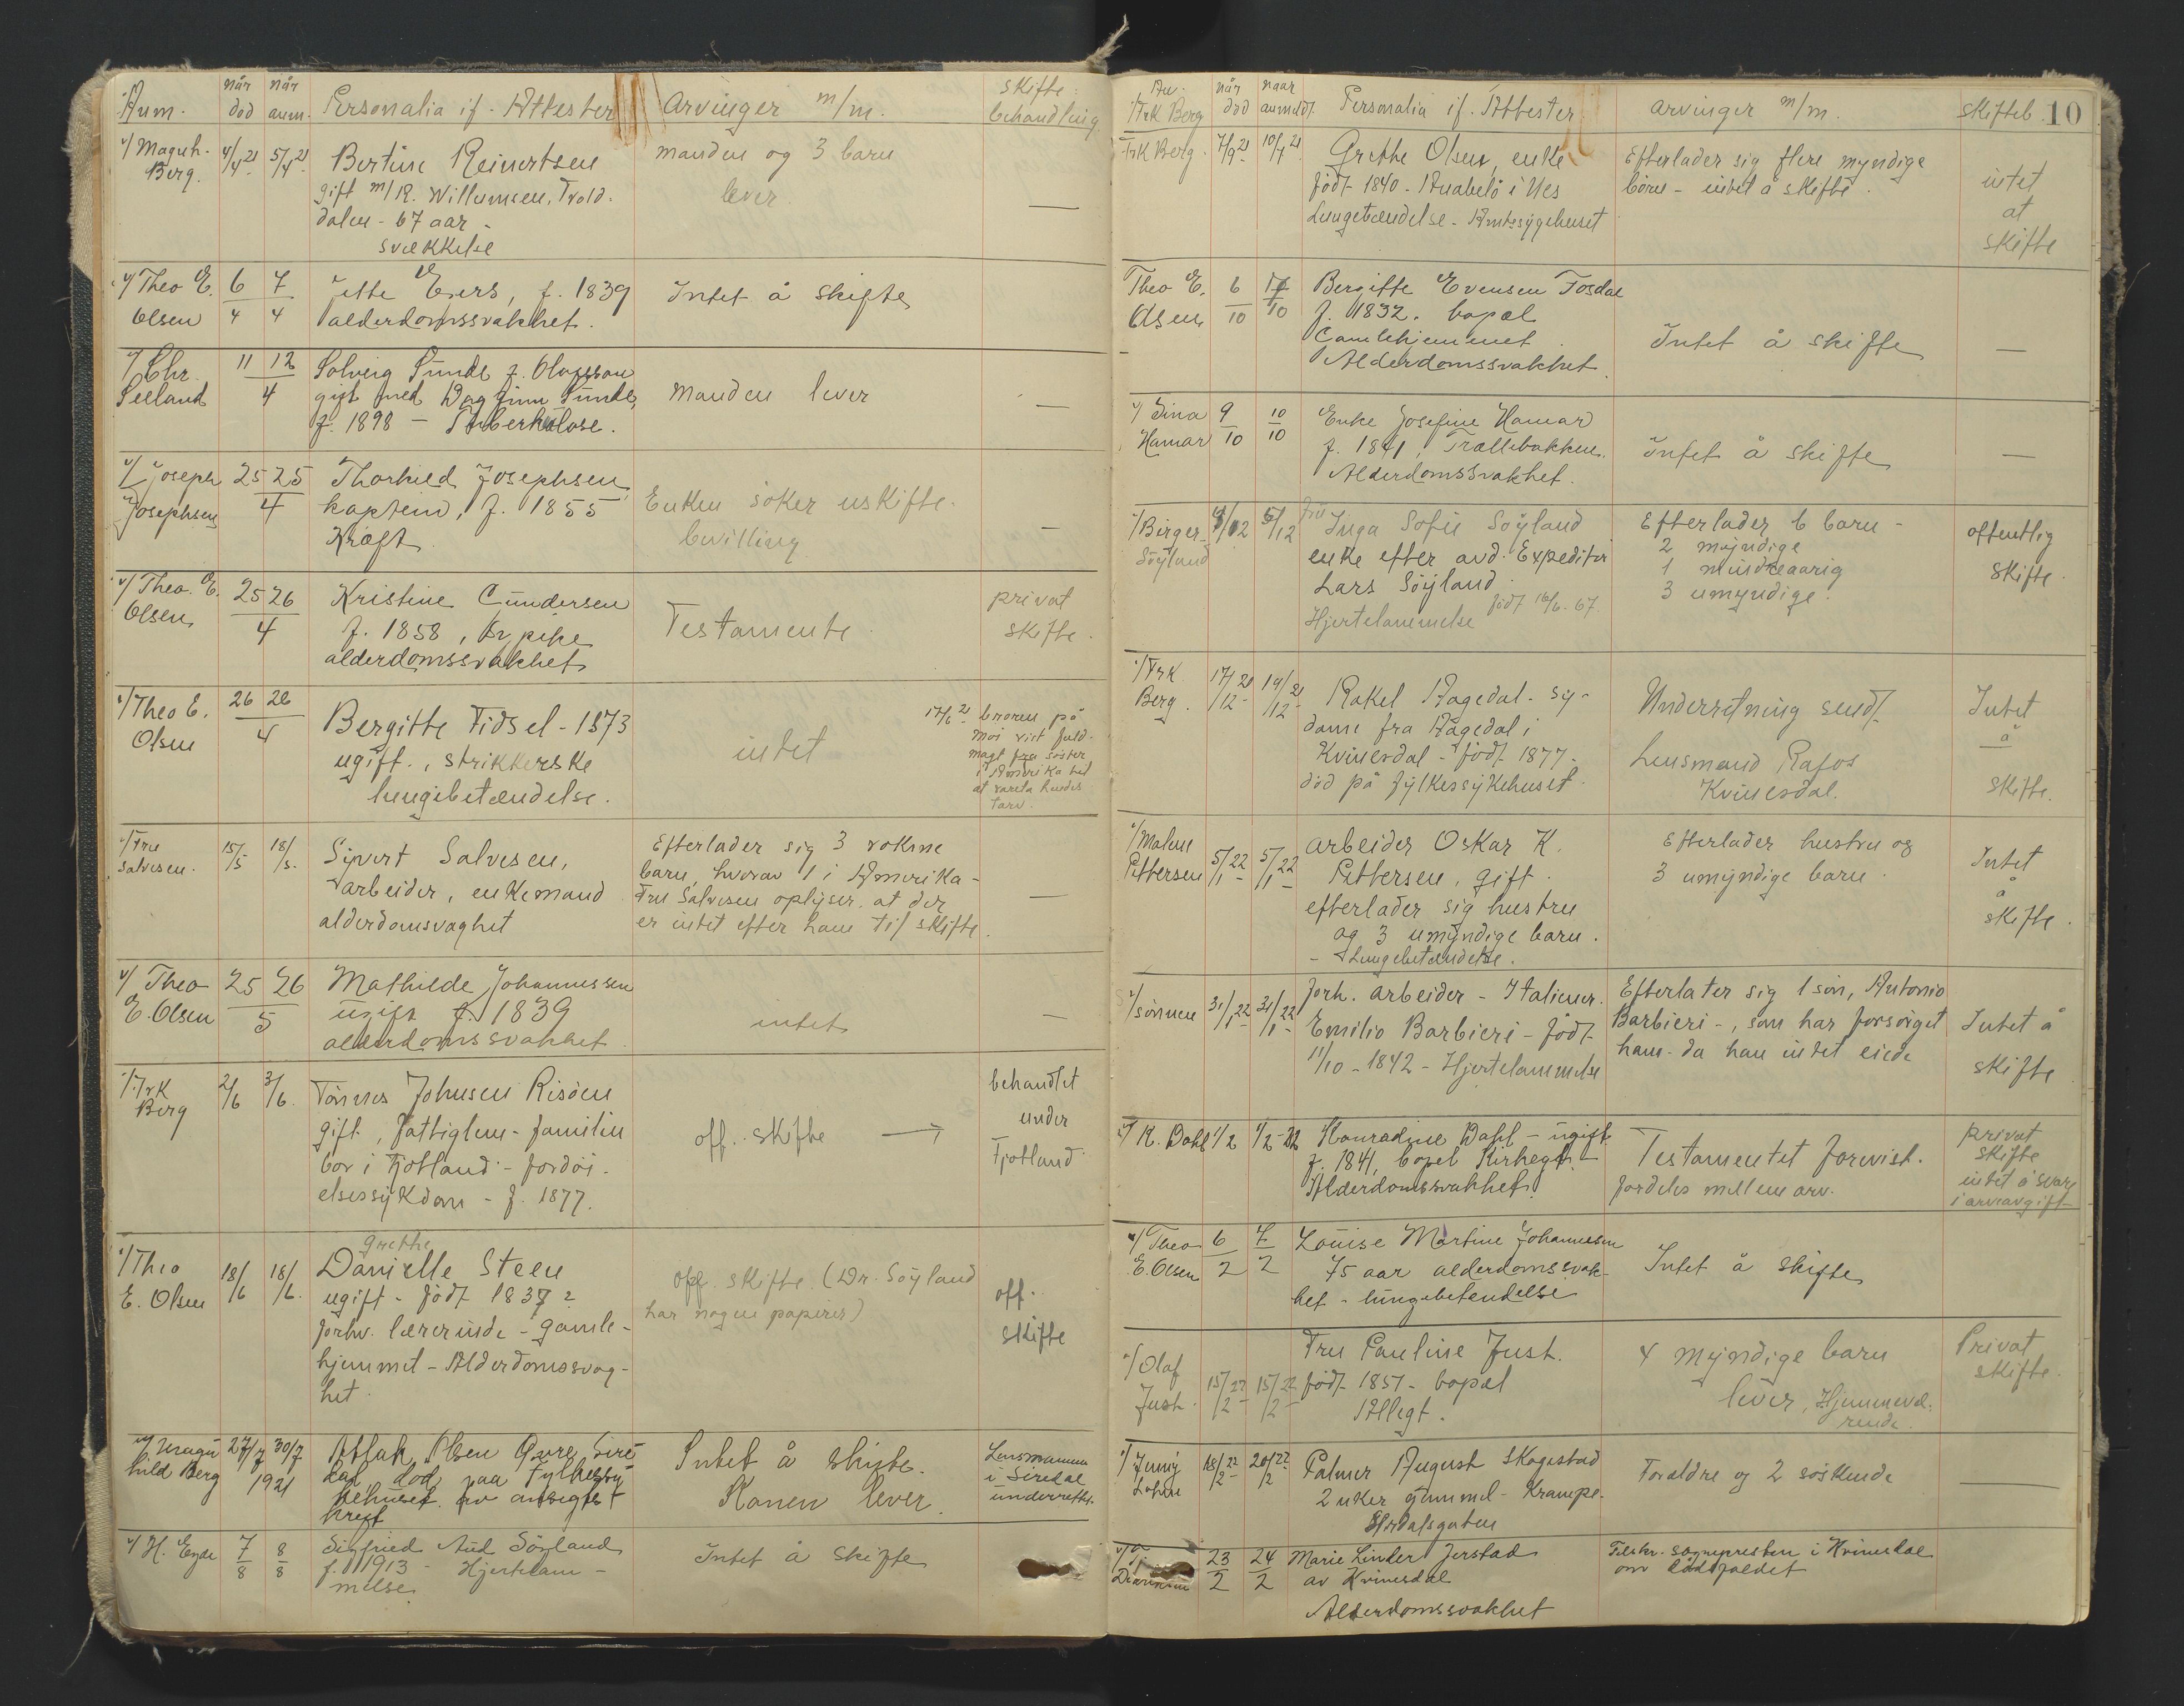 Anm.
når død
når anm.
Personalia if. Attester
Arvinger m/m.
Skifte-
behandling
v/ Magnh.
Berg.
4/4 21
5/4 21
Bertine Reinertsen
gift m/R. Willumsen, Trold-
dalen - 67 aar -
svækkelse
manden og 3 barn
lever
—
v/ Theo E.
Olsen
6/4
7/4
Jette Evers, f. 1839
alderdomssvakhet.
Intet å skifte
v/ Chr.
Seeland
11 12
4
Solveig Sunde f. Olausson
gift med Dagfinn Sunde,
f. 1898 - Tuberkulose.
Manden lever
—
v/ Joseph
Josephsen
25 25
4
Thorkild Josephsen,
kaptein, f. 1855
Kræft
Enken søker uskifte-
bevilling
—
v/ Theo. E.
Olsen
25 26
4
Kristine Gundersen
f. 1858, pike
alderdomssvakhet
Testamente
privat
skifte.
v/ Theo E.
Olsen
26 28
4
Bergitte Fidsel - 1873
ugift., strikkerske
lungebetændelse.
intet
17/6 21 broren på
Moi vist fuld-
magt fra søster
i Amerika til
at vareta hendes
tarv.
v/ Fru
Salvesen.
15/5
18/5.
Sivert Salvesen,
arbeider, enkemand
alderdomsvaghet
Efterlader sig 3 voksne
barn, hvorav 1 i Amerika -
Fru Salvesen oplyser at der
er intet efter ham til skifte.
—
v/ Theo
E. Olsen
25 26
5
Mathilde Johannessen
ugift f. 1839
alderdomssvakhet
intet
—
v/ Frk
Berg
2/6
3/6.
Tønnes Johnsen Risøen
gift, fattiglem - familien
bor i Fjotland - fordøi-
elsessykdom - f. 1877.
off. skifte →
behandlet
under
Fjotland
v/ Theo
E. Olsen
18/6
18/6.
Grethe
Danielle Steen
ugift - født 1837?
forhv. lærerinde - gamle-
hjemmet - Alderdomssvag-
het.
off. skifte (Dr. Söyland
har nogen papirer)
off.
skifte
v/ Magn
hild Berg
27/7
30/7
1921
Aslak Olsen Øvre Sire
dal død paa Fylkessy
kehuset av ansigts
kreft
Intet å skifte.
Konen lever.
Lensmannen
i Siredal
underrettet.
v/ H. Eyde
7/8
8/8
Sigfried Aud Söyland
f. 1913 - Hjertelam-
melse.
Intet å skifte
Av.
Frk Berg
når død
naar anmeldt.
Personalia if. Attester
Arvinger m/m.
Skifteb.
10
Frk Berg.
7/9 21
10/9 21
Grethe Olsen, enke
født 1840 - Anabelö i Nes
Lungebetændelse - Amtssygehuset
Efterlader sig flere myndige
børn - intet å skifte.
intet
at
skifte
Theo E.
Olsen
6/10
17/10
Bergitte Evensen Fosdal
f. 1832. bopæl
Gamlehjemmet
Alderdomssvakhet.
Intet å skifte
—
v/ Sina
Hamar
9/10
10/10
Enke Josefine Hamar
f. 1841, Trællebakken.
Alderdomssvakhet.
Intet å skifte
—
v/ Birger
Söyland
4/12
5/12
fru
Inga Sofie Söyland
enke efter avd. Expeditør
Lars Söyland.
født 16/6. 67.
Hjertelammelse
Efterlader 6 barn -
2 myndige
1 mindreaarig
3 umyndige.
offentlig
skifte.
v/ Frk
Berg.
17/12 21
19/12 21
Rakel Aagedal - sy-
dame fra Aagedal i
Kvinesdal - født 1877 -
død på fylkessykehuset
Underretning sendt
Lensmand Rafos
Kvinesdal.
Intet
å
skifte.
v/ Malene
Pettersen
5/1 22
5/1 22
Arbeider Oskar K.
Pettersen, gift.
efterlader sig hustru
og 3 umyndige barn.
- Lungebetændelse.
Efterlader hustru og
3 umyndige barn.
Intet
å
skifte.
v/ sønnen
31/1 22
31/1 22
Forh. arbeider - Italiener.
Emilio Barbieri - født
11/10 - 1842 - Hjertelammelse
Efterlater sig 1 søn, Antonio
Barbieri -, som har forsørget
ham - da han intet eiede
Intet å
skifte
v/ K. Dahl
1/2
1/2 - 22
Konradine Dahl - ugift
f. 1841, bopel Kirkegt. -
Alderdomssvakhet.
Testamentet forevist.
fordeles mellem arv.
privat
skifte
intet å svare
i arveavgift
v/ Theo
E. Olsen
6/2
7/2
Louise Martine Johannesen
75 aar alderdomssvak-
het - lungebetendelse
Intet å skifte
v/ Olaf
Just.
15/2 22
15/2 22
Fru Pauline Just.
født 1851 - bopæl
Allegt.
4 myndige barn
lever, Hjemmevæ-
rende.
Privat
skifte.
v/ Jenny
18/2 22
20/2 22
Palmer August Skogestad
2 uker gammel - Krampe.
Forældre og 2 søskende
—
23/2
24/2
Marie Linder Jerstad
av Kvinesdal
Alderdomssvakhet
Tilskr. sognepresten i Kvinesdal
om dødsfaldet